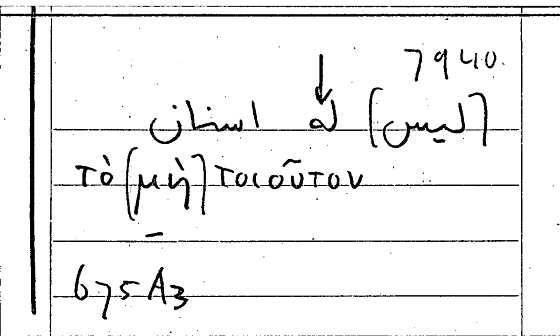 7940.
[ليس] له اسنان
τὸ [μὴ] τοιοῦτον
675 A3